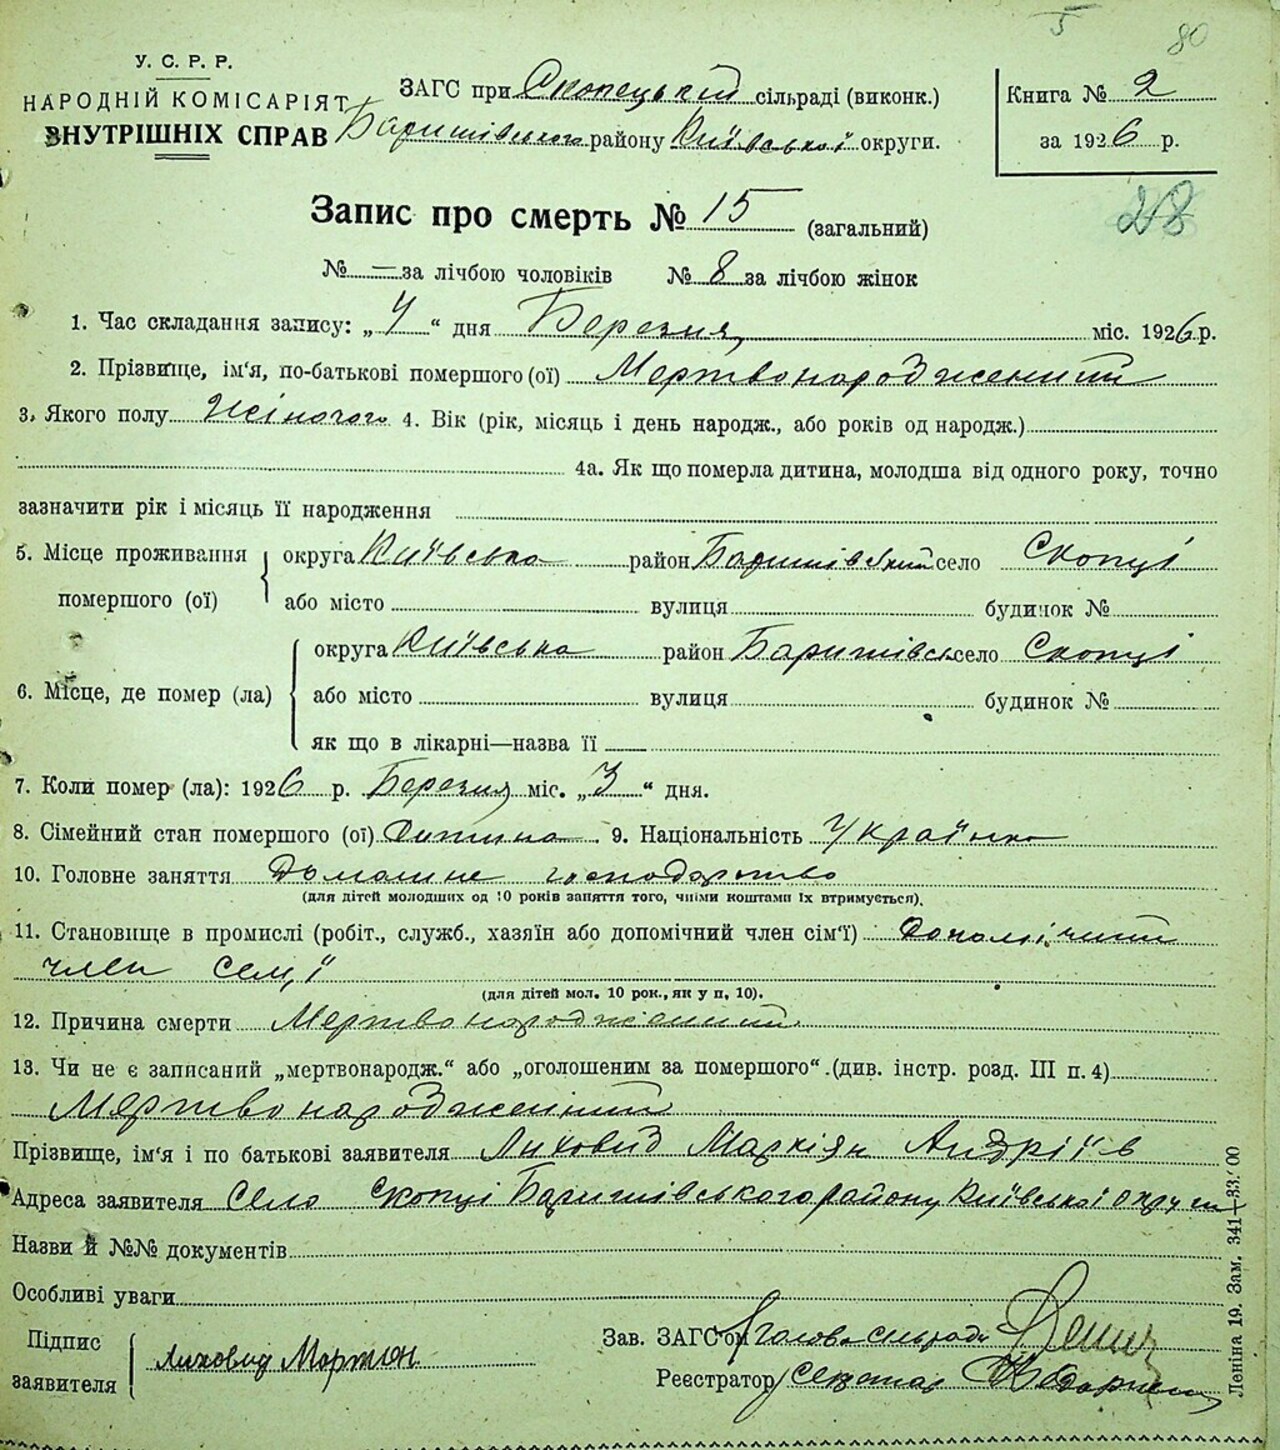 5 80
У. С. Р. Р.
НАРОДНІЙ КОМІСАРІЯТ
ВНУТРІШНІХ СПРАВ
ЗАГС при Скопецький сільраді (виконк.)
Баришівського району Київської округи.
Книга № 2
за 1926 р.
28
Запис про смерть № 15 (загальний)
№ — за лічбою чоловіків № 8 за лічбою жінок
1. Час складання запису: „4“ дня Березня міс. 1926 р.
2. Прізвище, ім‘я, по-батькові помершого (ої) Мертвонароджений
3. Якого полу Жіночого 4. Вік (рік, місяць і день народж., або років од народж.)
4а. Як що померла дитина, молодша від одного року, точно
зазначити рік і місяць її народження
5. Місце проживання помершого (ої) округа Київська район Баришівський село Скопці
або місто вулиця будинок №
6. Місце, де помер (ла) округа Київська район Баришівськ село Скопці
або місто вулиця будинок №
як що в лікарні—назва її
7. Коли помер (ла): 1926 р. Березня міс. „3“ дня.
8. Сімейний стан помершого (ої) Дитина. 9. Національність Українка
10. Головне заняття Домашне господарство
(для дітей молодших од 10 років заняття того, чиїми коштами їх втримується).
11. Становище в промислі (робіт., служб., хазяїн або допомічний член сім‘ї) Допомічний
член сем,ї
(для дітей мол. 10 рок., як у п. 10).
12. Причина смерти Мертвонароджений
13. Чи не є записаний „мертвонародж.“ або „оголошеним за помершого“. (див. інстр. розд. III п. 4)
Мертвонароджений
Прізвище, ім‘я і по батькові заявителя Лиховид Маркіян Андріїв
Адреса заявителя Село Скопці Баришівського району Київської округи
Назви й №№ документів
Особливі уваги
Підпис заявителя Лиховид Мортон
Зав. ЗАГС‘ом Голова сільради
Реєстратор Секретар
Леніна 19. Зам. 341—33.000